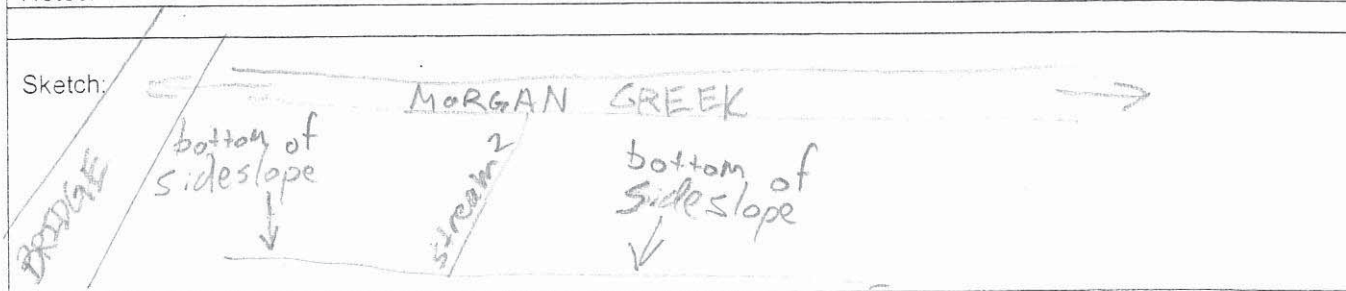 Sketch:
MORGAN CREEK
BRIDGE
bottom of
sideslope
stream 2
bottom of
sideslope